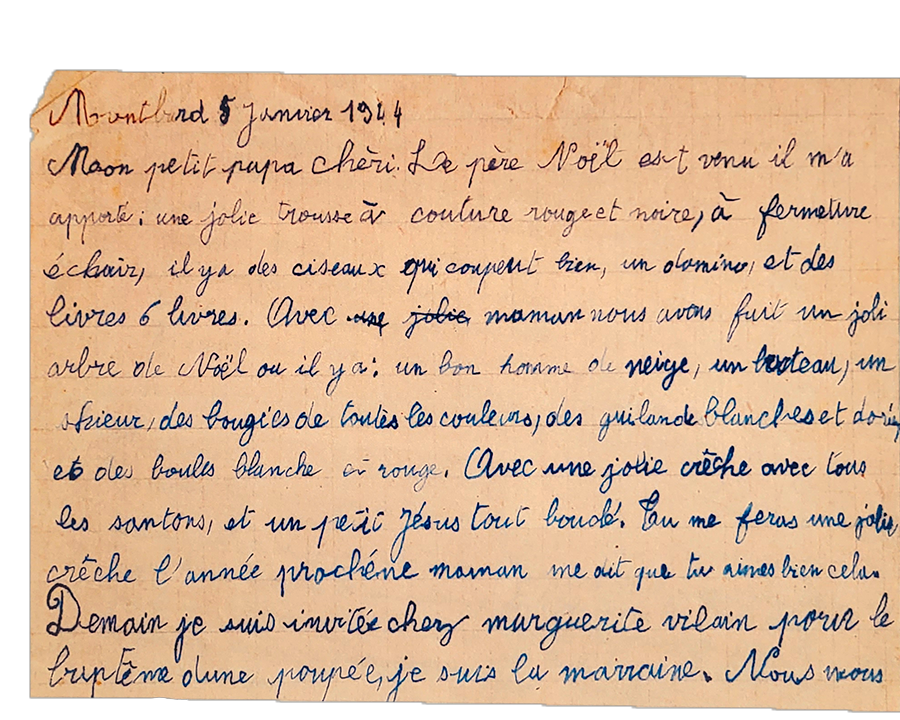 Montbard 5 Janvier 1944
Meon petit papa chèri. Le père Noël est venu il m'a
apporté : une jolie trousse à couture rouge et noire, à fermeture
échair, il ya des ciseaux qui coupent bien, un domino, et des
livres 6 livres. Avec use jolie maman nous avons fait un joli
arbre de Noël ou il ya : un bon homme de neige, un bateau, un
skieur, des bougies de toutes les couleurs, des guilande blanches et dorés,
et des boules blanche et rouge. Avec une jolie crêche avec tous
les santons, et un petit Jésus tout bouclé. Tu me feras une jolie
crêche l'année prochéne maman me dit que tu aimes bien cela.
Demain je suis invitée chez marguerite vilain pour le
baptême dune poupée, je suis la marraine. Nous vous